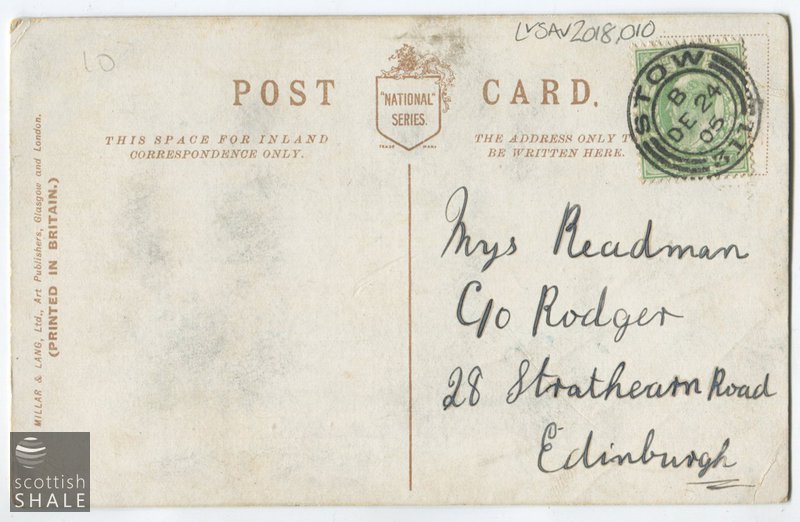 LVSAV2018.010
10
POST CARD.
"NATIONAL"
SERIES.
TRADE MARK
THIS SPACE FOR INLAND
CORRESPONDENCE ONLY.
THE ADDRESS ONLY T
BE WRITTEN HERE.
STOW
B
DE 24
05
Mrs Readman
C/o Rodger
28 Strathearn Road
Edinburgh
MILLAR & LANG, Ltd., Art Publishers, Glasgow and London.
(PRINTED IN BRITAIN.)
scottish
SHALE